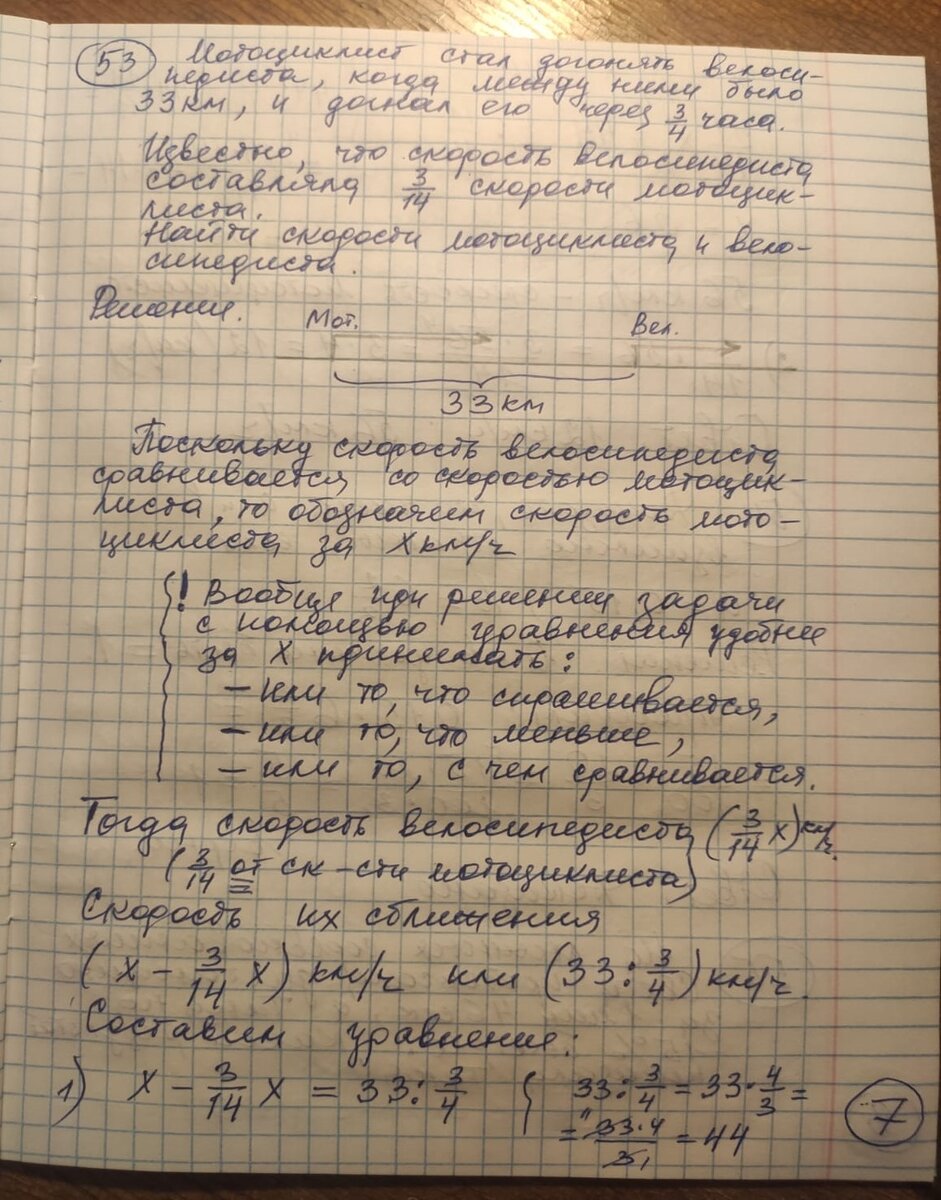 53 Мотоциклист стал догонять велоси-
педиста, когда между ними было
33 км, и догнал его через 3/4 часа.
Известно, что скорость велосипедиста
составляла 3/14 скорости мотоцик-
листа.
Найти скорости мотоциклиста и вело-
сипедиста.
Решение.
Мот. Вел.
33 км
Поскольку скорость велосипедиста
сравнивается со скоростью мотоцик-
листа, то обозначим скорость мото-
циклиста за х км/ч
! Вообще при решении задачи
с помощью уравнения удобнее
за х принимать:
– или то, что спрашивается,
– или то, что меньше,
– или то, с чем сравнивается.
Тогда скорость велосипедиста (3/14 х) км/ч.
(3/14 от ск-сти мотоциклиста)
Скорость их сближения
(х – 3/14 х) км/ч или (33 : 3/4) км/ч.
Составим уравнение:
1) х – 3/14 х = 33 : 3/4 { 33 : 3/4 = 33 · 4/3 =
= 11 33·4 / 3 1 = 44
7